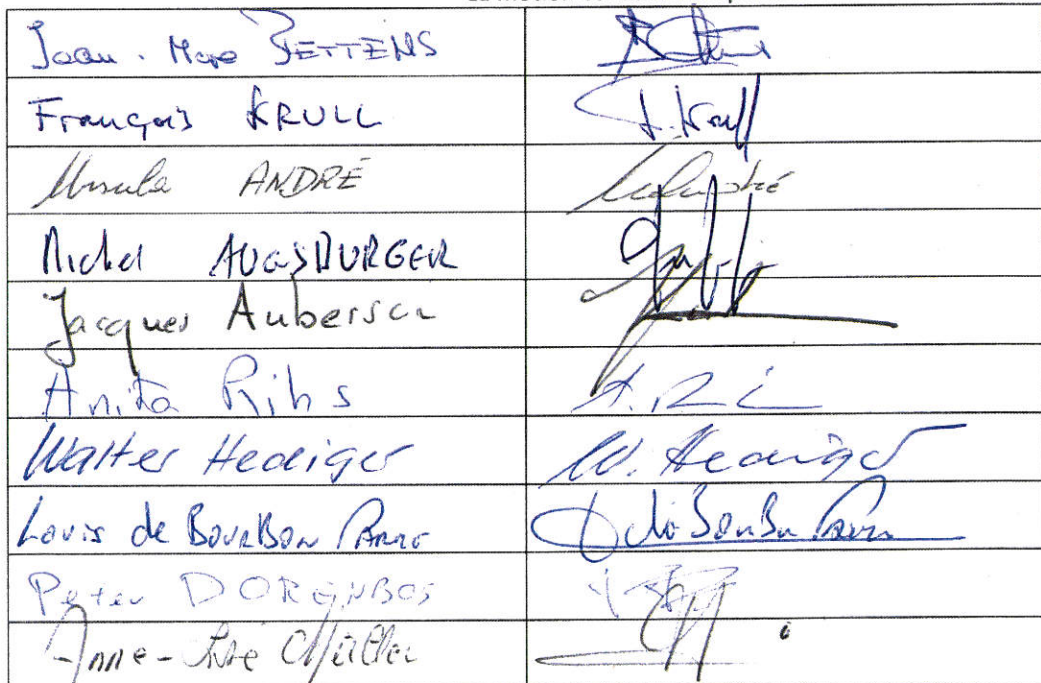 Jean-Marc BETTENS
François KRULL F. Krull
Ursula ANDRÉ
Michel AUGSBURGER
Jacques Auberson
Anita Rihs A. Ri
Walter Hediger W. Hediger
Louis de BOURBON PARME de Bourbon Parme
Peter DORENBOS
Anne-Lise Müller